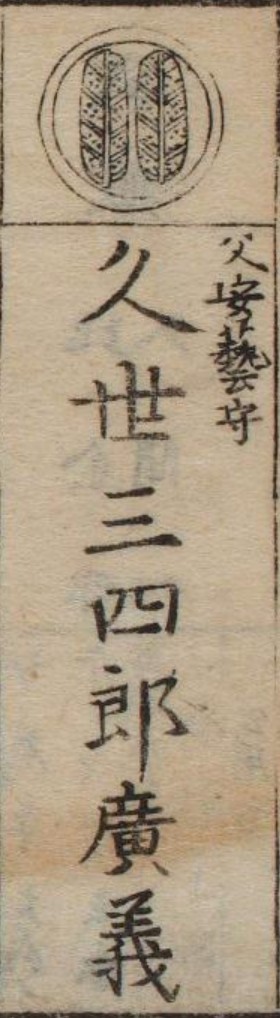 父安藝守
久世三四郎廣義